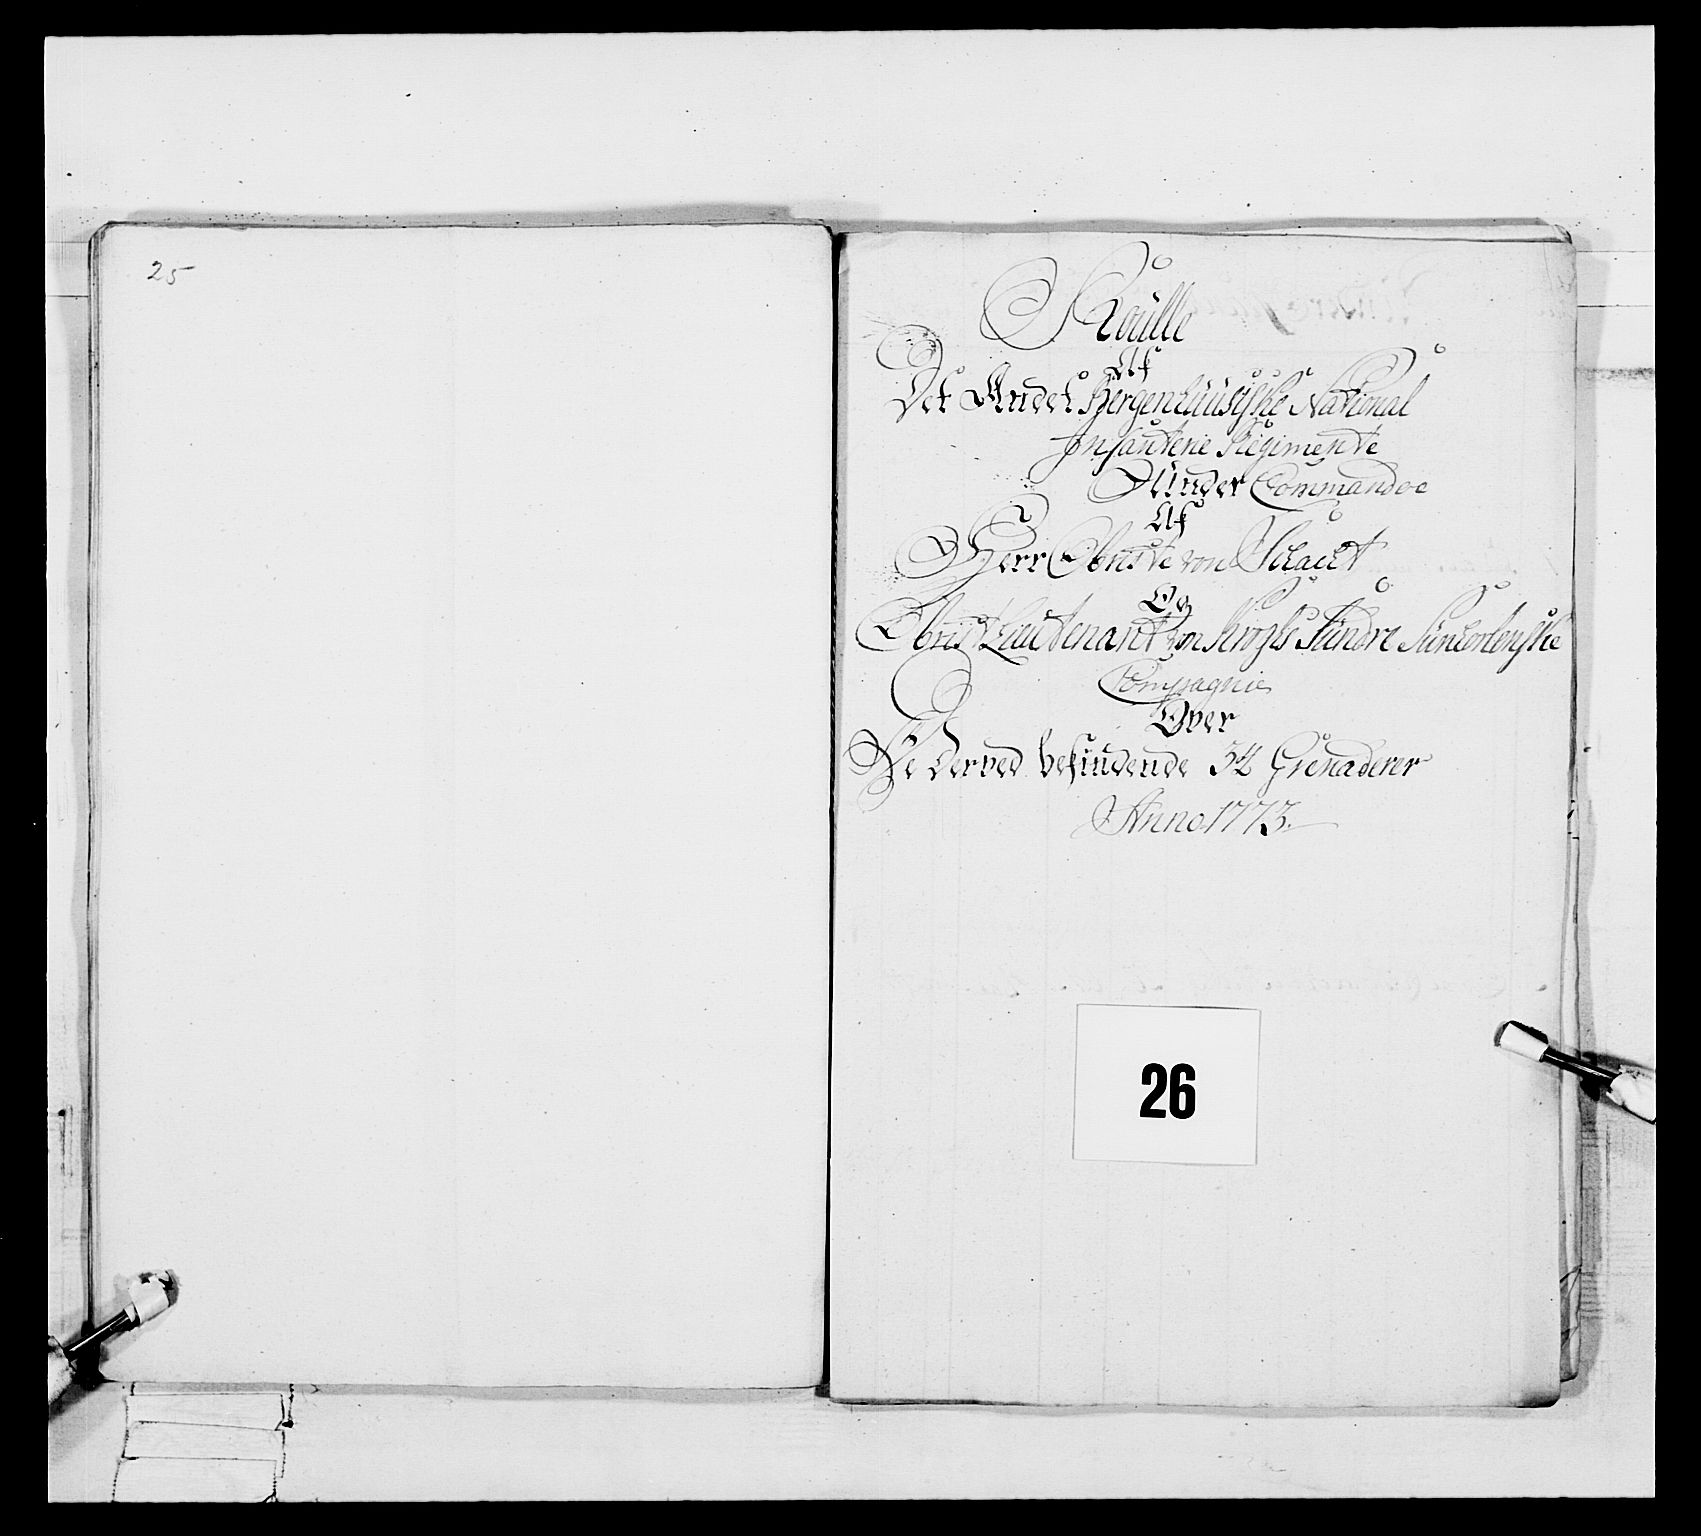 25
Roülle
Af
Det Andet Bergenhuusiske National
Infanterie Regimente
Under Commandoe
Af
Herr Obriste von Schacht
Og
Obrist Lieutenant von Kroghs Søndre Sundorlenske
Compagnie
Over
De derved befindende 34 Grenaderer
Anno 1773.
26